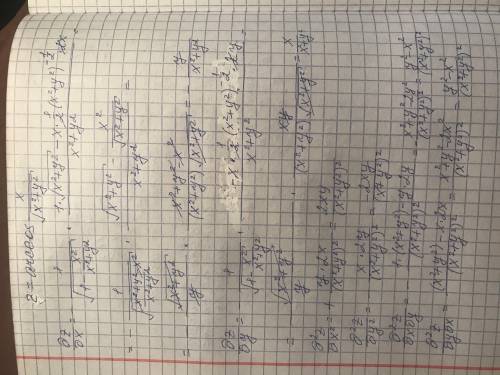 z = arccos x/√(x²+y²)
∂z/∂x = - 1/√(1 - x²/(x²+y²)) · (1·√(x²+y²) - x·1/2(x²+y²)^(-1/2)·2x)/(x²+y²) =
= - 1/√((x²+y²-x²)/(x²+y²)) · (√(x²+y²) - x²/√(x²+y²))/(x²+y²) =
= - √(x²+y²)/y · (x²+y²-x²)/((x²+y²)√(x²+y²)) = - y/(x²+y²)
∂z/∂y = - 1/√(1 - x²/(x²+y²)) · (-x·1/2(x²+y²)^(-1/2)·2y)/(x²+y²) =
= √(x²+y²)/y · xy/((x²+y²)√(x²+y²)) = x/(x²+y²)
∂²z/∂x² = + y·2x/(x²+y²)² = 2xy/(x²+y²)²
∂²z/∂y² = - x·2y/(x²+y²)² = - 2xy/(x²+y²)²
∂²z/∂x∂y = - (1·(x²+y²) - y·2y)/(x²+y²)² = - (x²+y²-2y²)/(x²+y²)² = (y²-x²)/(x²+y²)²
∂²z/∂y∂x = ((x²+y²) - x·2x)/(x²+y²)² = (x²+y²-2x²)/(x²+y²)² = (y²-x²)/(x²+y²)²